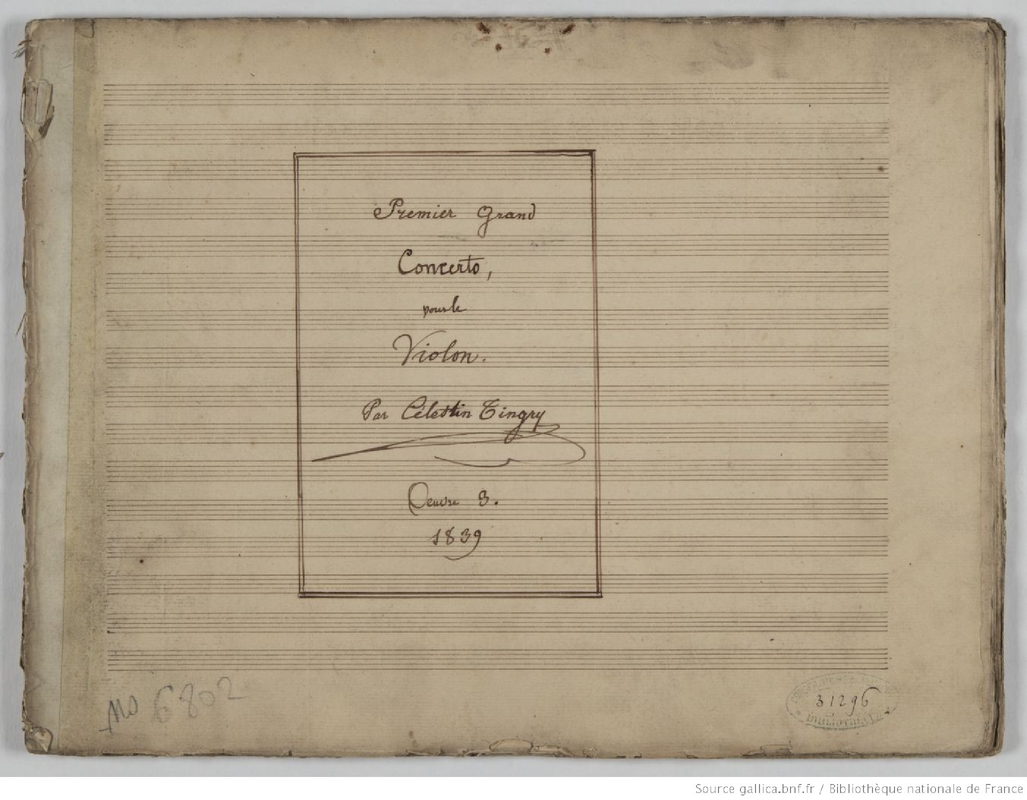 Premier Grand
Concerto,
pour le
Violon.
Par Célestin Tingry
Œuvre 3.
1839
Ms 6802
31296
Source gallica.bnf.fr / Bibliothèque nationale de France